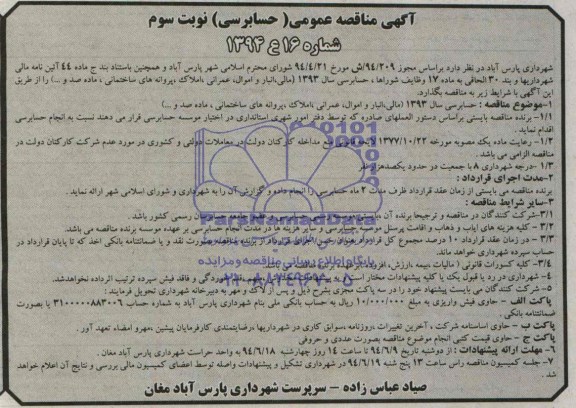 آگهی مناقصه عمومی( حسابرسی) نوبت سوم
شماره ۱۶ع ۱۳۹۴
شهرداری پارس آباد در نظر دارد براساس مجوز ۹۴/۲۰۹/ش مورخ ۹۴/۴/۲۱ شورای محترم اسلامی شهر پارس آباد و همچنین باستناد بند ج ماده ۴۴ آئین نامه مالی
شهرداریها و بند ۳۰ الحاقی به ماده ۱۷ وظایف شوراها ، حسابرسی سال ۱۳۹۳ (مالی،انبار و اموال، عمرانی ،املاک ،پروانه های ساختمانی ، ماده صد و ...) را از طریق
این آگهی با شرایط زیر به مناقصه بگذارد.
۱-موضوع مناقصه : حسابرسی سال ۱۳۹۳ (مالی،انبار و اموال، عمرانی ،املاک ،پروانه های ساختمانی ، ماده صد و ...)
۱/۱- برنده مناقصه بایستی براساس دستور العملهای صادره که توسط دفتر امور شهری استانداری در اختیار موسسه حسابرسی قرار می دهند نسبت به انجام حسابرسی
اقدام نماید .
۱/۲- رعایت ماده یک مصوبه مورخه ۱۳۷۷/۱۰/۲۲ لایحه قانونی منع مداخله کارکنان دولت در معاملات دولتی و کشوری در مورد عدم شرکت کارکنان دولت در
مناقصه الزامی می باشد .
۱/۳- درجه شهرداری ۸ با جمعیت در حدود یکصدهزار نفر
۲-مدت اجرای قرارداد :
برنده مناقصه می بایستی از زمان عقد قرارداد ظرف مدت ۲ ماه حسابرسی را انجام داده و گزارش آن را به شهرداری و شورای اسلامی شهر ارائه نماید .
۳-سایر شرایط مناقصه :
۳/۱-شرکت کنندگان در مناقصه و ترجیحا برنده آن جامعه حسابداران رسمی کشور باشد .
۳/۲- کلیه هزینه های ایاب و ذهاب و اقامت پرسنل موسسه حسابرسی و سایر هزینه ها در مدت انجام حسابرسی بر عهده موسسه برنده مناقصه می باشد.
۳/۳- در زمان عقد قرارداد ۱۰ درصد مجموع کل قرارداد بعنوان حسن اجرای قرارداد از برنده مناقصه بصورت نقد و یا ضمانتنامه بانکی اخذ که تا پایان قرارداد در
حساب سپرده شهرداری خواهد ماند.
۳/۴- کلیه کسورات قانونی ( مالیات ،بیمه ،ارزش افزوده
۴- شهرداری در رد یا قبول یک یا کلیه پیشنهادات مختار است و فاقد فیش سپرده ترتیب اثرداده نخواهدشد.
۵- شرکت کنندگان می بایست پیشنهاد خود را در سه پاکت مجزی بشرح ذیل و پس از لاک و مهر به دبیرخانه شهرداری تحویل فرمایند :
پاکت الف - حاوی فیش واریزی به مبلغ ۱۰/۰۰۰/۰۰۰ ریال به حساب بانکی ملی بنام شهرداری پارس آباد به شماره حساب ۳۱۰۰۰۰۰۸۸۳۰۰۶ یا بصورت
ضمانتنامه بانکی .
پاکت ب - حاوی اساسنامه شرکت ، آخرین تغییرات ،روزنامه ،سوابق کاری در شهرداریها ،رضایتمندی کارفرمایان پیشین ،مهرو امضاء تعهد آور .
پاکت ج - حاوی قیمت کتبی انجام موضوع مناقصه بصورت عددی و حروفی
۶- مهلت ارائه پیشنهادات : از دوشنبه تاریخ ۹۴/۶/۹ تا ساعت ۱۴ روز چهارشنبه ۹۴/۶/۱۸ به واحد حراست شهرداری پارس آباد مغان .
۷- جلسه کمیسیون مناقصه راس ساعت ۱۳ پنج شنبه ۹۴/۶/۱۹ در شهرداری تشکیل و پیشنهادات واصله توسط اعضای کمیسیون مالی بررسی و نتایج آن اعلام خواهد
شد .
صیاد عباس زاده - سرپرست شهرداری پارس آباد مغان
ParsNamadData
پایگاه اطلاع رسانی مناقصه و مزایده